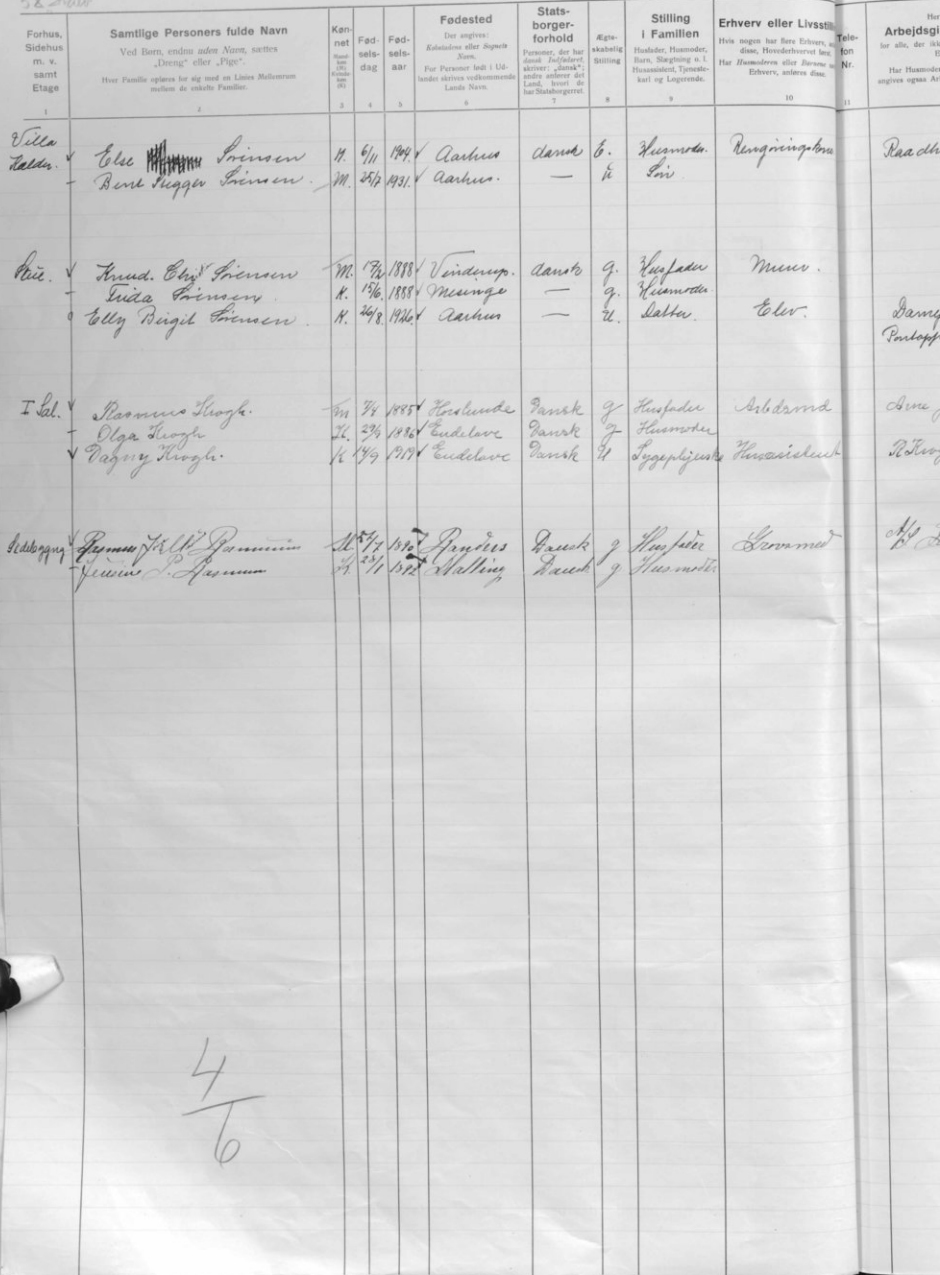 Forhus, Sidehus m. v. samt Etage
Samtlige Personers fulde Navn
Ved Børn, endnu uden Navn, sættes „Dreng“ eller „Pige“.
Hver Familie opføres for sig med en Linies Mellemrum mellem de enkelte Familier.
Køn-net
Fød-sels-dag
Fød-sels-aar
Fødested
Der angives: Købstadens eller Sognets Navn.
For Personer født i Ud-landet skrives vedkommende Lands Navn.
Stats-borger-forhold
Personer, der har dansk Indfødsret, skriver: „dansk“; andre anfører det Land, hvori de har Statsborgerret.
Ægte-skabelig Stilling
Stilling i Familien
Husfader, Husmoder, Barn, Slægtning o. l. Husassistent, Tjeneste-karl og Logerende.
Erhverv eller Livsstil
Hvis nogen har flere Erhverv, disse, Hovederhvervet først.
Har Husmoderen eller Børnene Erhverv, anføres disse.
Tele-fon Nr.
Arbejdsgi
for alle, der ikk
Har Husmoder
angives ogsaa Ar
1 2 3 4 5 6 7 8 9 10 11
Villa
Kælder. Else Sørensen K. 6/11 1904. Aarhus dansk E. Husmoder. Raadh
— Bent Sørensen. M. 25/7 1931. Aarhus. — u Søn
Stue. Knud. Sørensen M. 1888 Vinderup. dansk g. Husfader Murer.
— Frida Sørensen. K. 15/6. 1888 Mesinge — g. Husmoder.
Elly Birgit Sørensen. K. 26/8. 1926. Aarhus — U. Datter. Elev.
I Sal. Rasmus Krogh. M 1885 Horslunde Dansk g Husfader Arbdsmd Arne
— Olga Krogh K. 29/9 1886 Endelave Dansk g Husmoder
Dagny Krogh. K 14/9 1919 Endelave Dansk U
Rasmus Rasmussen M 1890 Randers Dansk g Husfader Grovsmed A/S
— Rasmussen K. 1892 Dansk g Husmoder
4
6